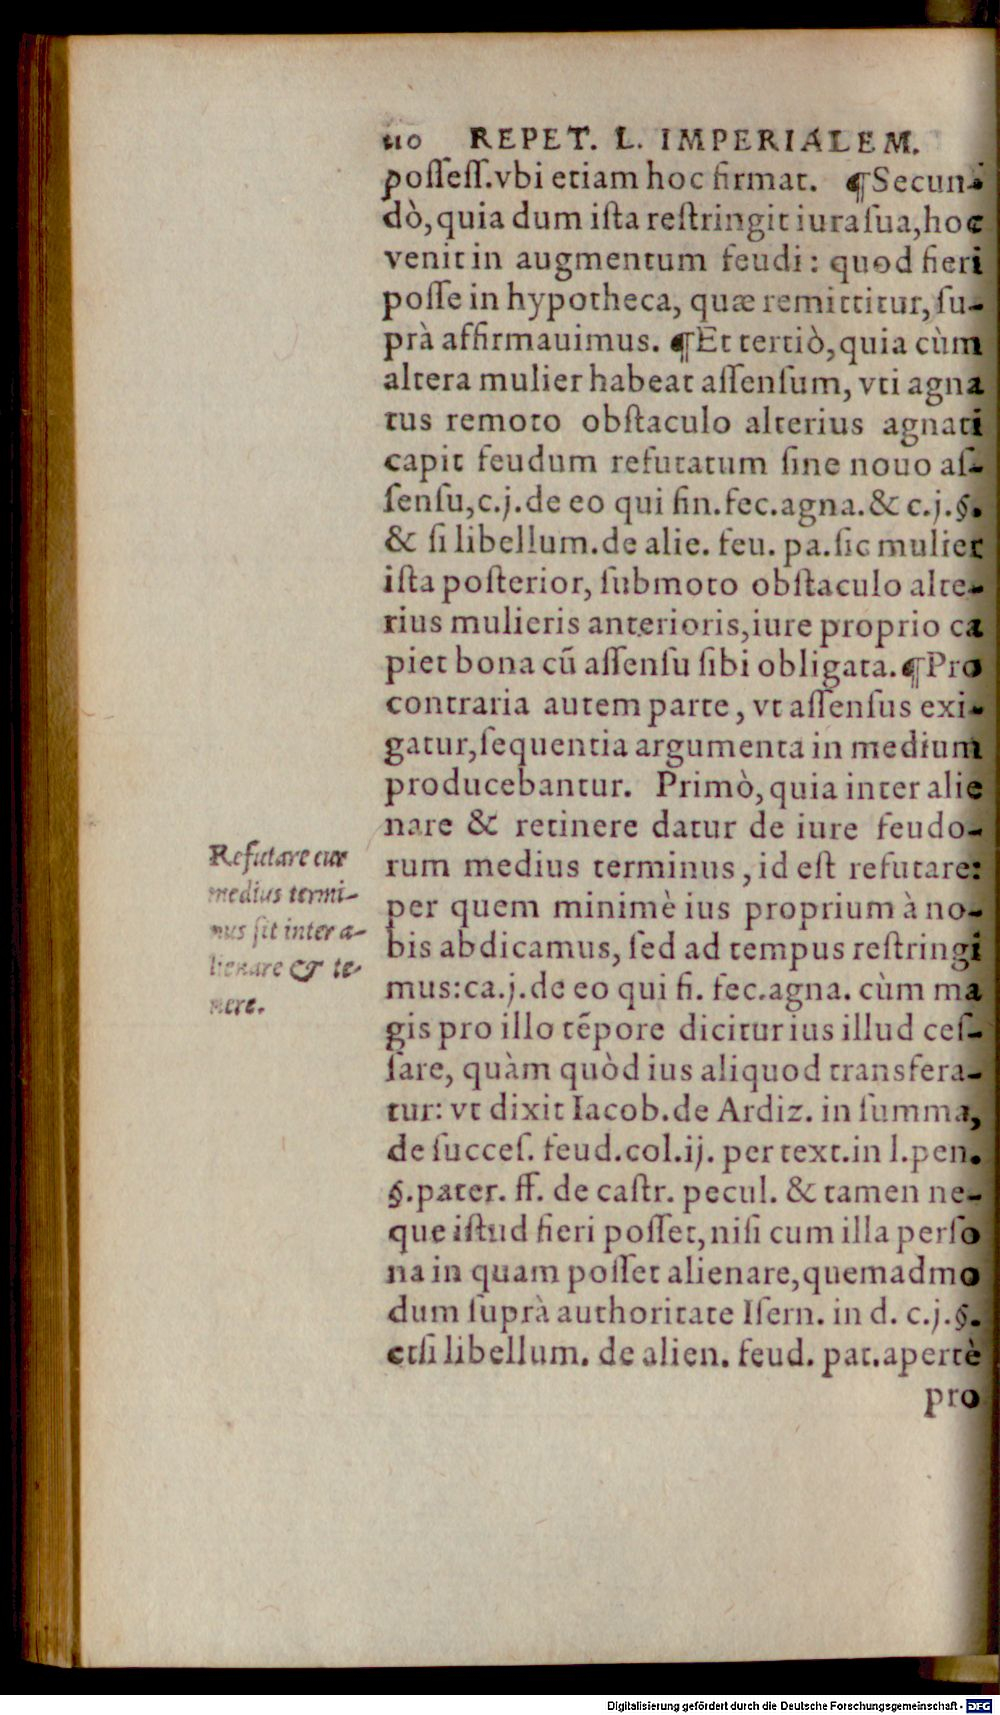 110 REPET. L. IMPERIALEM.
poſſeſſ.vbi etiam hoc firmat. ¶Secun-
dò, quia dum iſta reſtringit iura ſua, hoc
venit in augmentum feudi: quod fieri
poſſe in hypotheca, quæ remittitur, ſu-
prà affirmauimus. ¶Et tertiò, quia cùm
altera mulier habeat aſſenſum, vti agna
tus remoto obſtaculo alterius agnati
capit feudum refutatum ſine nouo aſ-
ſenſu, c.j. de eo qui fin. fec. agna. & c.j.§.
& ſi libellum. de alie. feu. pa. ſic mulier
iſta poſterior, ſubmoto obſtaculo alte-
rius mulieris anterioris, iure proprio ca
piet bona cũ aſſenſu ſibi obligata. ¶Pro
contraria autem parte, vt aſſenſus exi-
gatur, ſequentia argumenta in medium
producebantur. Primò, quia inter alie
nare & retinere datur de iure feudo-
rum medius terminus, id eſt refutare:
per quem minimè ius proprium à no-
bis abdicamus, ſed ad tempus reſtringi
mus: ca.j. de eo qui fi. fec. agna. cùm ma
gis pro illo tẽpore dicitur ius illud ceſ-
ſare, quàm quòd ius aliquod transfera-
tur: vt dixit Iacob. de Ardiz. in ſumma,
de ſucceſ. feud. col. ij. per text. in l. pen.
§. pater. ff. de caſtr. pecul. & tamen ne-
que iſtud fieri poſſet, niſi cum illa perſo
na in quam poſſet alienare, quemadmo
dum ſuprà authoritate Iſern. in d. c.j.§.
etſi libellum. de alien. feud. pat. apertè
pro
Refutare cur
medius termi-
nus ſit inter a-
lienare & te-
nere.
Digitalisierung gefördert durch die Deutsche Forschungsgemeinschaft - DFG